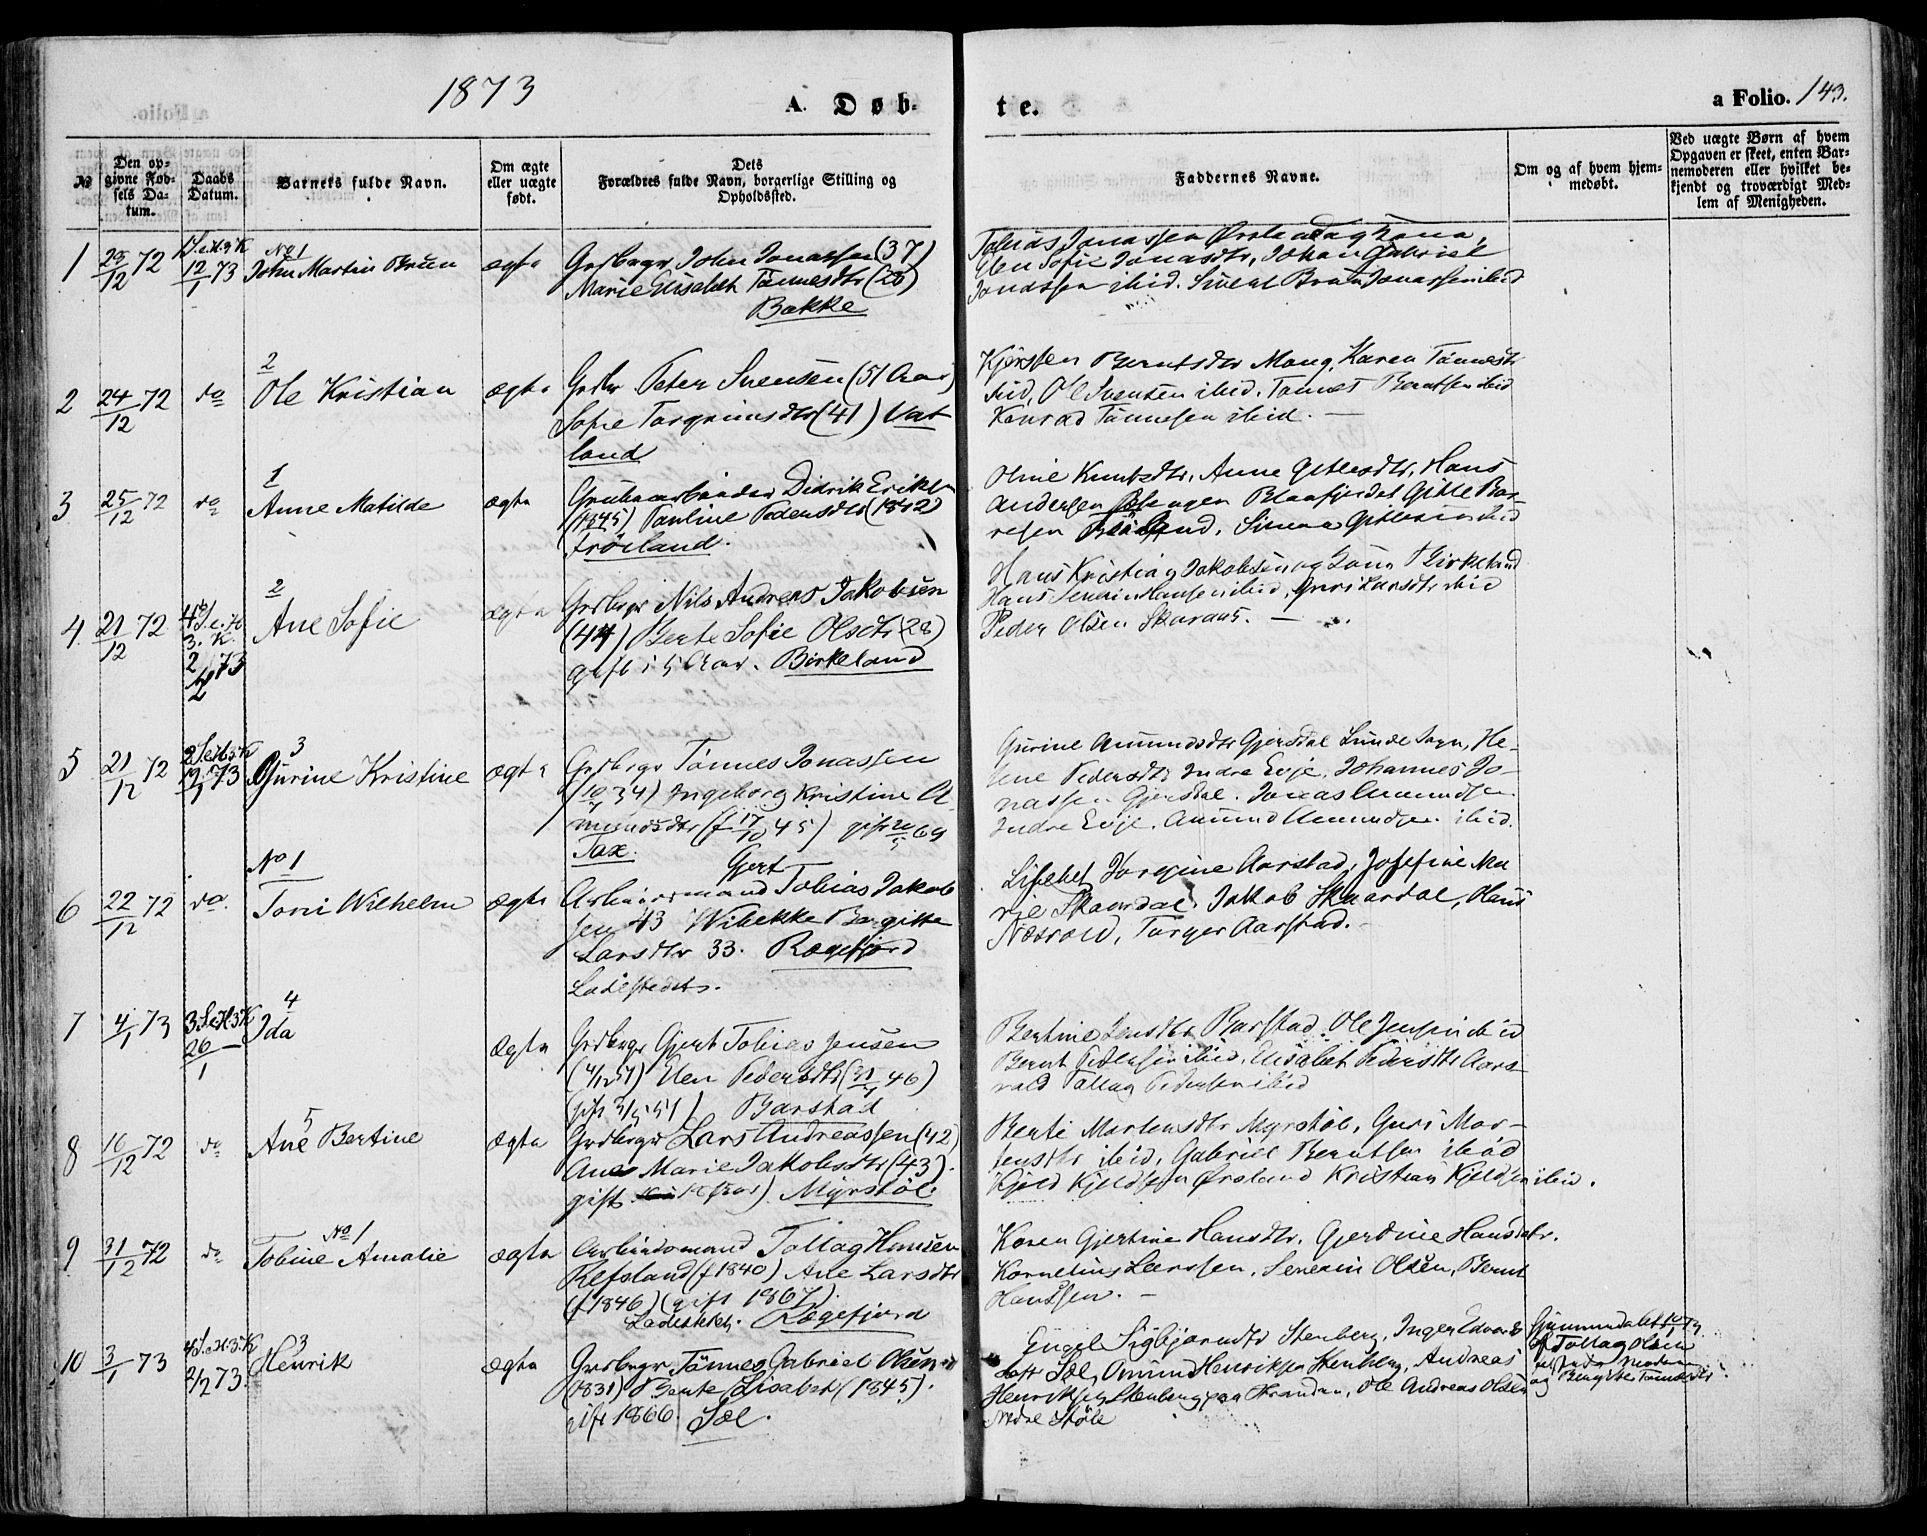 1873
A. Døb-
te.
a Folio. 143.
№
Den op-
givne Fød-
sels Da-
tum.
Daabs
Datum.
Barnets fulde Navn.
Om ægte
eller uægte
født.
Dets
Forældres fulde Navn, borgerlige Stilling og
Opholdssted.
Faddernes Navne.
Om og af hvem hjem-
medøbt.
Ved uægte Børn af hvem
Opgaven er skeet, enten Bar-
nemoderen eller hvilket be-
kjendt og troværdigt Med-
lem af Menigheden.
1
72
12/1 73
No 1
John Martin Brun
ægte
Grdbrgr John Jonassen (37)
Marie Elisabet Tønnesdtr (28)
Bakke
Tobias Jonassen
Elen Sofie Jonasdtr, Johan Gabriel
Jonassen ibid. Jonassen ibid
2
24/12 72
do
2
Ole Kristian
ægte
Peter Svensen (51 Aar)
Sofie Torgrimsdtr (41) Vat-
land
Kjersten Berntsdtr Mong, Karen Tønnesdtr
ibid, Ole Svensen ibid. Tønnes Berntsen ibid
Konrad Tønnesen ibid. —
3
25/12 72
do
1
Anne Matilde
ægte
Grubearbeider Didrik Eriksen
(1845) Pauline Pedersdtr (1842)
Frøiland.
Oline Knutsdtr, Anne Gitlesdtr, Hans
Andersen Blaafjeldet Gitle Bor-
resen
4
21/12 72
4 S. e. H.
3. K.
2/2 73
2
Ane Sofie
ægte
Grdbrgr Nils Andreas Jakobsen
(44) Berte Sofie Olsdtr (28)
gift i 5 Aar. Birkeland
Hans Kristian Jakobsen Birkeland
Hans Severin Hansen ibid, Guri Larsdtr ibid
Peder Olsen Skaraas. —
5
21/12 72
2 S. e. H. 3 K
19/1 73
3
Gurine Kristine
ægte
Grdbrgr Tønnes Jonassen
34) Ingeborg Kristine A-
mundsdtr (f 17/10 45) gift 69
Tax.
Gurine Amundsdtr Gjersdal Lunde Sogn, He-
lene Pedersdtr Indre Evje, Johannes Jo-
nassen Gjersdal. Jonas Amundsen
Indre Evje. Amund Amundsen ibid.
6
22/12 72
do.
No 1
Toni Wilhelm
ægte
Gjert
Arbeidsmand Tobias Jakob-
sen 43 Wibekke Bergitte
Larsdtr 33. Rægefjord
Ladestedet.
Lisebet Jorgine Aarstad, Josefine Ma-
rie Skaardal, Jakob Skaardal, Hans
Næsvold, Torger Aarstad. —
7
4/1 73
3 S. e. H. 3 K
26/1
4
Ida
ægte
Grdbrgr Gjert Tobias Jensen
Elen Pedersdtr (31/7 46)
Barstad
Bertine Jensdtr Barstad. Ole Jensen ibid
Bernt Pedersen ibid, Elisabet Pedersdtr Aars-
vold Tollag Pedersen ibid
8
10/12 72
do
5
Ane Bertine
ægte
Grdbrgr Lars Andreassen (42)
Ane Marie Jakobsdtr (43).
gift Aar). Myrstøl.
Berte Mortensdtr Myrstøl, Guri Mor-
tensdtr ibid, Gabriel Berntsen ibid
Kjeld Kjeldsen Ørsland Kristian Kjeldsen ibid.
9
31/12 72
do
No 1
Tobine Amalie
ægte
Arbeidsmand Tollag Hansen
Refsland (f 1840) Ane Larsdtr
(f 1846) (gift 1867).
Ladestedet. Rægefjord
Karen Gjertine Hansdtr. Gjertine Hansdtr.
Kornelius Larssen, Severin Olsen, Bernt
Hanssen. —
10
3/1 73
4 S. e. H. 3 K
2/2 73.
3
Henrik
ægte
Grdbrgr. Tønnes Gabriel Olsen
(1831) Berte Lisabet (1845).
gift 1866. Sæl.
Engel Sigbjørnsdtr Stenberg, Inger Edvards-
datt Sæl, Amund Henriksen Stenberg, Andreas
Henriksen Stenberg paa Stranden, Ole Andreas Olsen
Nedre Støle
Hjemmedøbt
af Tollag Olsen